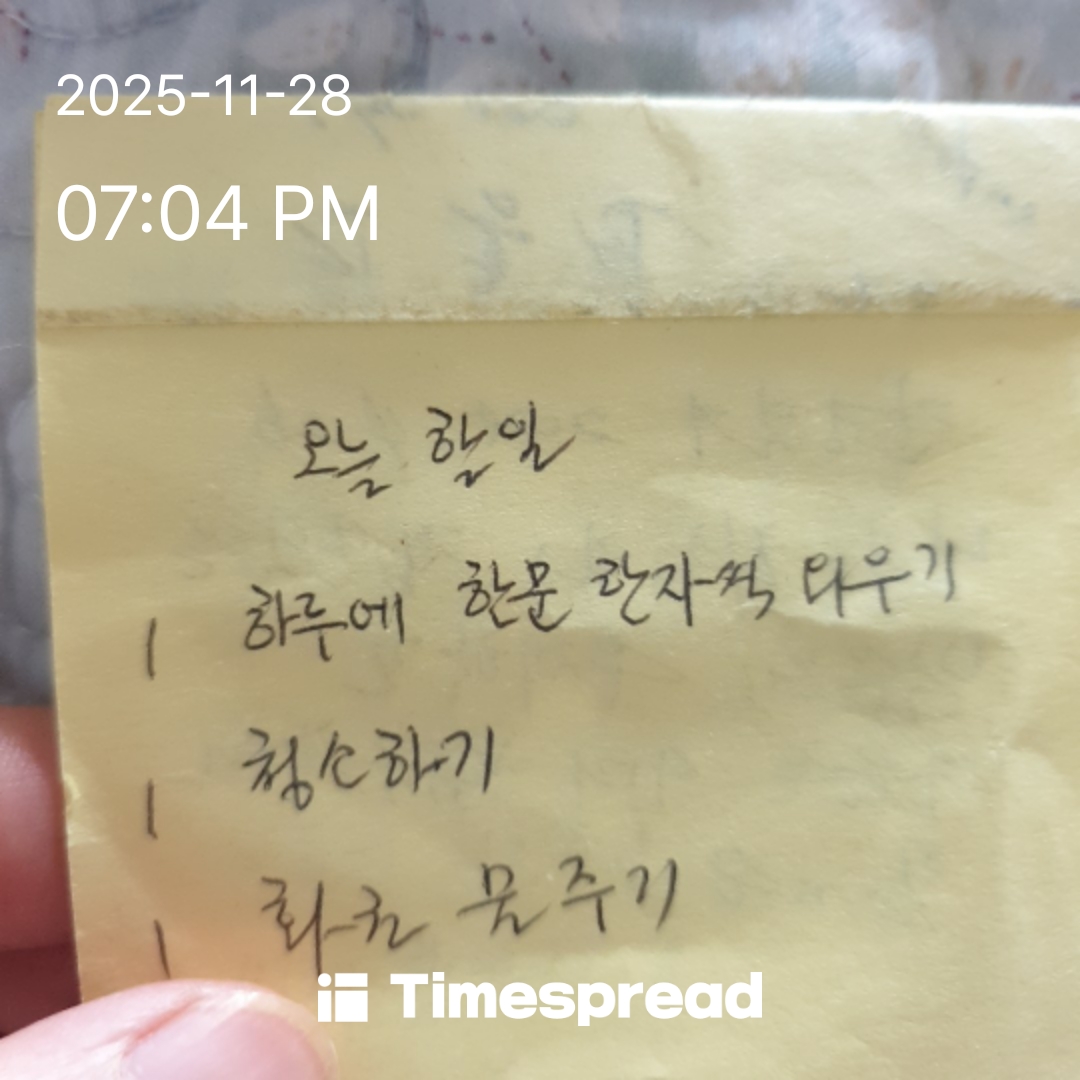 2025-11-28
07:04 PM
오늘 할일
| 하루에 한문 한자씩 외우기
| 청소하기
| 화분 물주기
Timespread